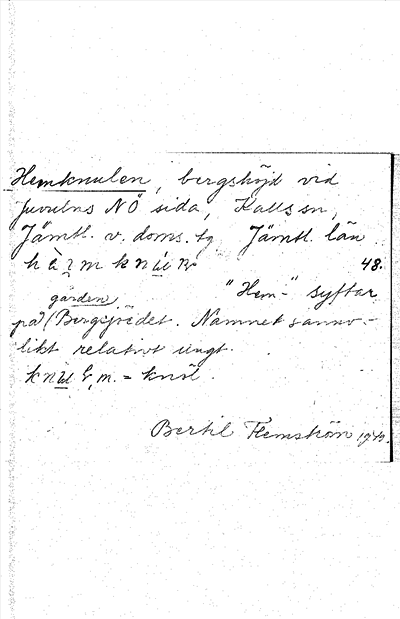 Hemknulen, bergshöjd vid
Juvulns NÖ sida, Kalls sn,
Jämtl. v. doms. tg Jämtl. län
48.
"Hem-" syftar
gården
på Bergsjödet. Namnet sanno-
likt relativt ungt.
m. = knöl.
Bertil Flemström